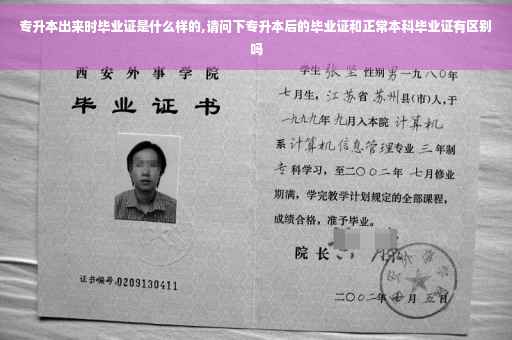 专升本出来时毕业证是什么样的,请问下专升本后的毕业证和正常本科毕业证有区别
吗
西安外事学院
毕业证书
证书编号:0209130411
学生张坚性别男一九八〇年
七月生，江苏省苏州县(市)人,于
一九九九年九月入本院计算机
系计算机信息管理专业三年制
专科学习，至二〇〇二年七月修业
期满，学完教学计划规定的全部课程，
成绩合格，准予毕业。
院长
二〇〇二年七月五日